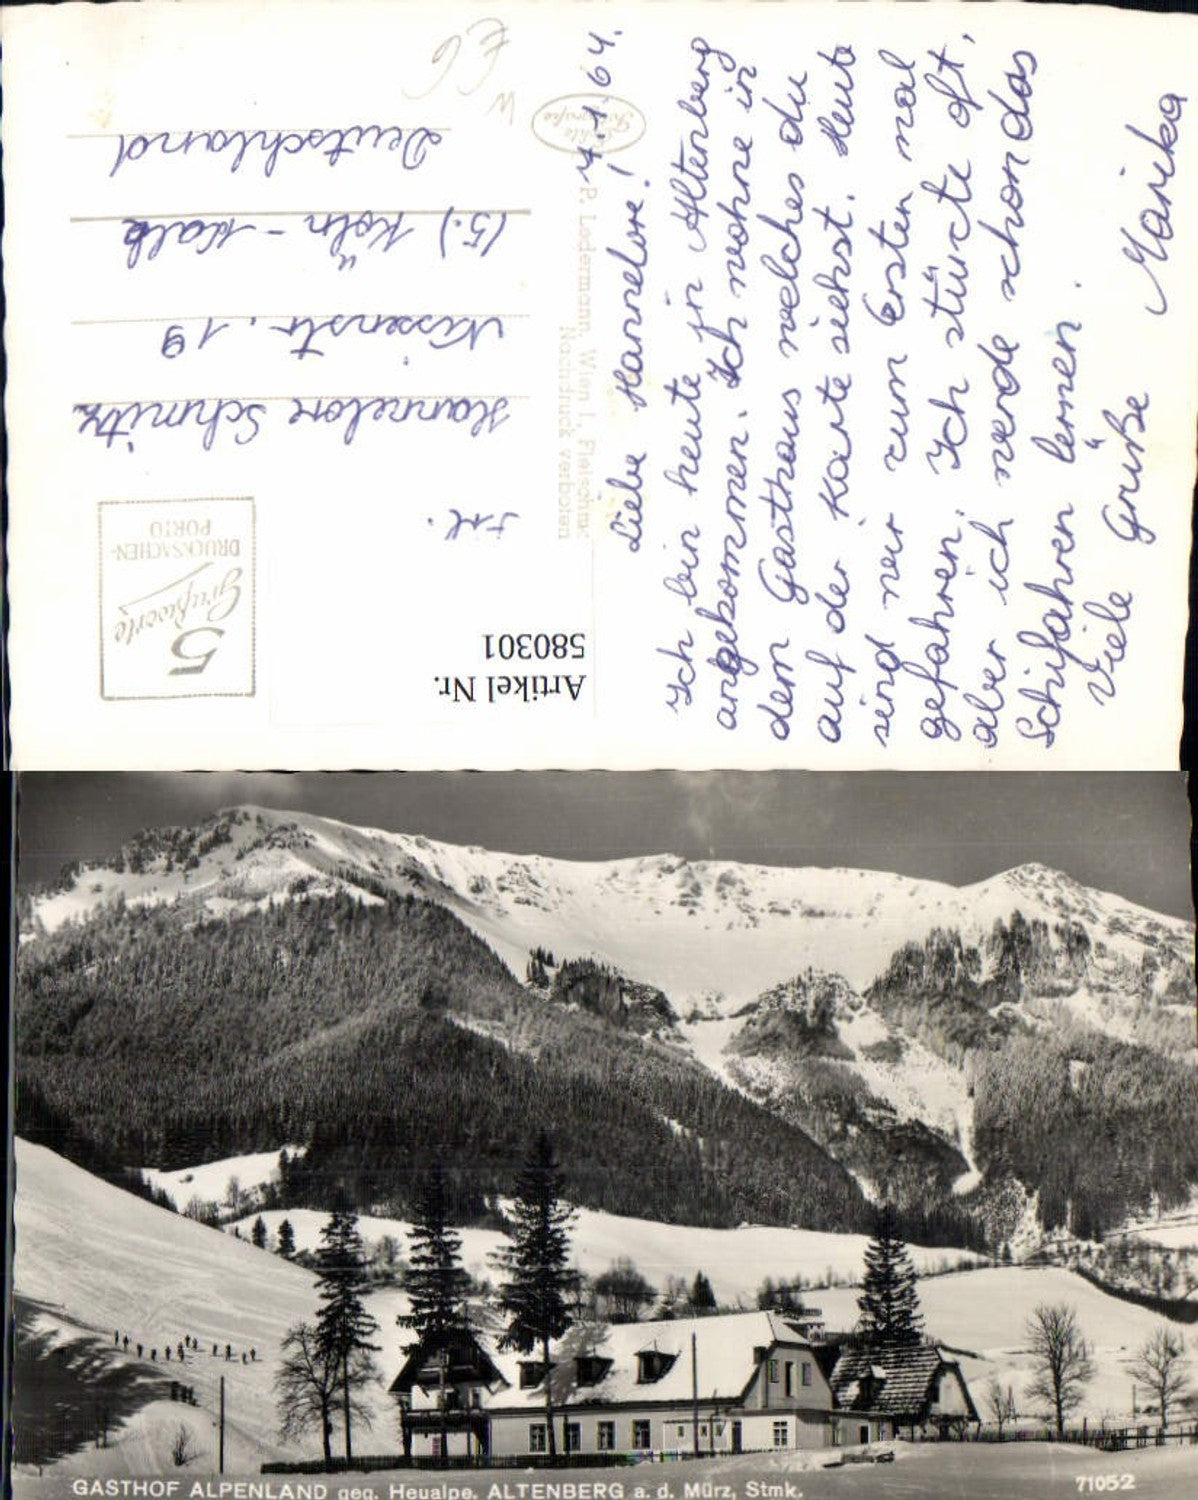 4.1.64.
Liebe Hannelore!
Ich bin heute in Altenberg
angekommen. Ich wohne in
dem Gasthaus welches du
auf der Karte siehst. Heute
sind wir zum Ersten mal
gefahren. Ich stürzte oft,
aber ich werde schon das
Schifahren lernen.
Viele Grüße
Marika
P. Ledermann, Wien I., Fleischmkt.
Nachdruck verboten
Echte
5
Grußworte
DRUCKSACHEN-
PORTO
Frl.
Hannelore Schmitz
Nissenstr. 19
(5.) Köln - Kalk
Deutschland
W
E6
Artikel Nr.
580301
GASTHOF ALPENLAND geg. Heualpe. ALTENBERG a. d. Mürz, Stmk.
71052